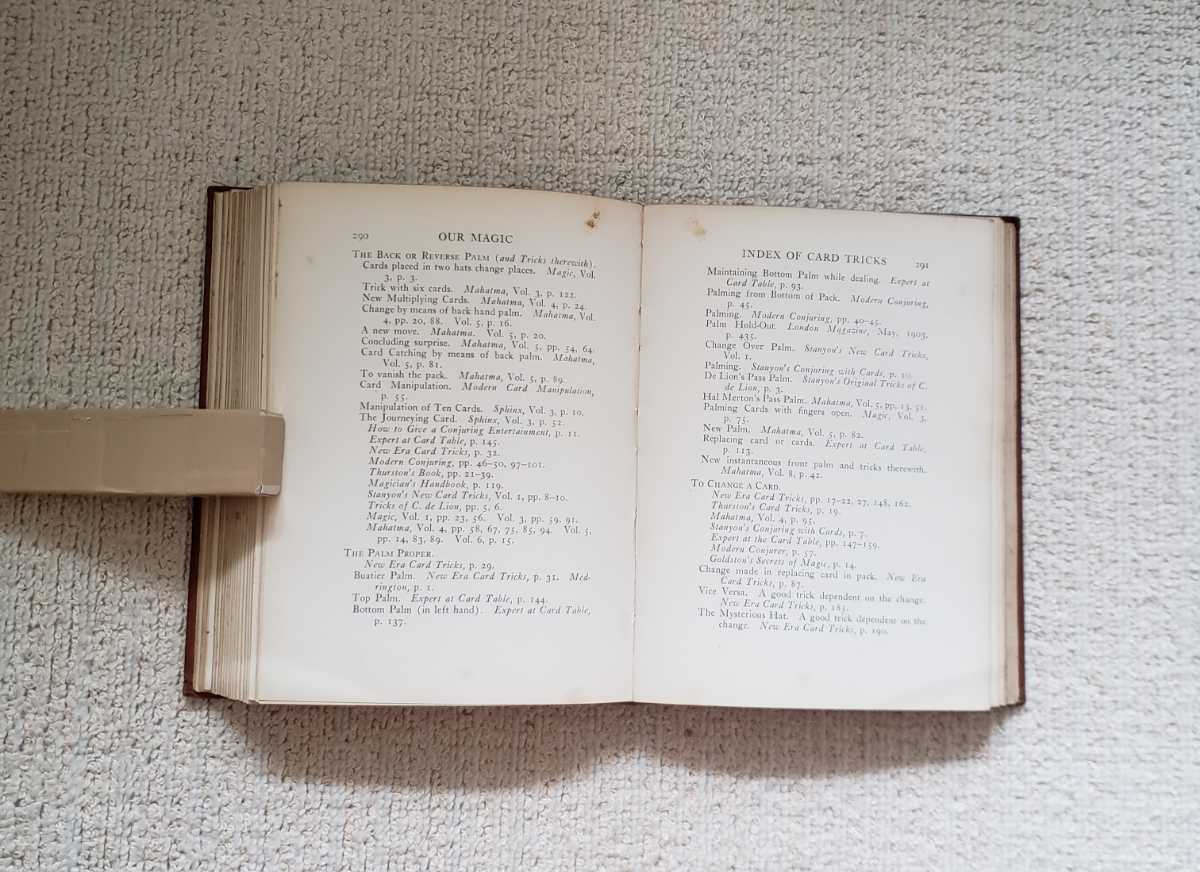 290
OUR MAGIC
THE BACK OR REVERSE PALM (and Tricks therewith).
Cards placed in two hats change places. Magic, Vol.
3, p. 3.
Trick with six cards. Mahatma, Vol. 3, p. 122.
New Multiplying Cards. Mahatma, Vol. 4, p. 24.
Change by means of back hand palm. Mahatma, Vol.
4, pp. 20, 88. Vol. 5, p. 16.
A new move. Mahatma. Vol. 5, p. 20.
Concluding surprise. Mahatma, Vol. 5, pp. 54, 64.
Card Catching by means of back palm. Mahatma,
Vol. 5, p. 81.
To vanish the pack. Mahatma, Vol. 5, p. 89.
Card Manipulation. Modern Card Manipulation,
p. 55.
Manipulation of Ten Cards. Sphinx, Vol. 3, p. 10.
The Journeying Card. Sphinx, Vol. 3, p. 52.
How to Give a Conjuring Entertainment, p. 11.
Expert at Card Table, p. 145.
New Era Card Tricks, p. 32.
Modern Conjuring, pp. 46-50, 97-101.
Thurston's Book, pp. 21-39.
Magician's Handbook, p. 119.
Stanyon's New Card Tricks, Vol. 1, pp. 8-10.
Tricks of C. de Lion, pp. 5, 6.
Magic, Vol. 1, pp. 23, 56. Vol. 3, pp. 59, 91.
Mahatma, Vol. 4, pp. 58, 67, 75, 85, 94. Vol. 5,
pp. 14, 83, 89. Vol. 6, p. 15.
THE PALM PROPER.
New Era Card Tricks, p. 29.
Buatier Palm. New Era Card Tricks, p. 31. Med-
rington, p. 1.
Top Palm. Expert at Card Table, p. 144.
Bottom Palm (in left hand). Expert at Card Table,
p. 137.
INDEX OF CARD TRICKS
291
Maintaining Bottom Palm while dealing. Expert at
Card Table, p. 93.
Palming from Bottom of Pack. Modern Conjuring,
p. 45.
Palming. Modern Conjuring, pp. 40-45.
Palm Hold-Out. London Magazine, May, 1905,
p. 435.
Change Over Palm. Stanyon's New Card Tricks,
Vol. 1.
Palming. Stanyon's Conjuring with Cards, p. 10.
De Lion's Pass Palm. Stanyon's Original Tricks of C.
de Lion, p. 3.
Hal Merton's Pass Palm. Mahatma, Vol. 5, pp. 13, 51.
Palming Cards with fingers open. Magic, Vol. 3,
p. 75.
New Palm. Mahatma, Vol. 5, p. 82.
Replacing card or cards. Expert at Card Table,
p. 113.
New instantaneous front palm and tricks therewith.
Mahatma, Vol. 8, p. 42.
TO CHANGE A CARD.
New Era Card Tricks, pp. 17-22, 27, 148, 162.
Thurston's Card Tricks, p. 19.
Mahatma, Vol. 4, p. 95.
Stanyon's Conjuring with Cards, p. 7.
Expert at the Card Table, pp. 147-159.
Modern Conjurer, p. 57.
Goldston's Secrets of Magic, p. 14.
Change made in replacing card in pack. New Era
Card Tricks, p. 87.
Vice Versa. A good trick dependent on the change.
New Era Card Tricks, p. 183.
The Mysterious Hat. A good trick dependent on the
change. New Era Card Tricks, p. 190.